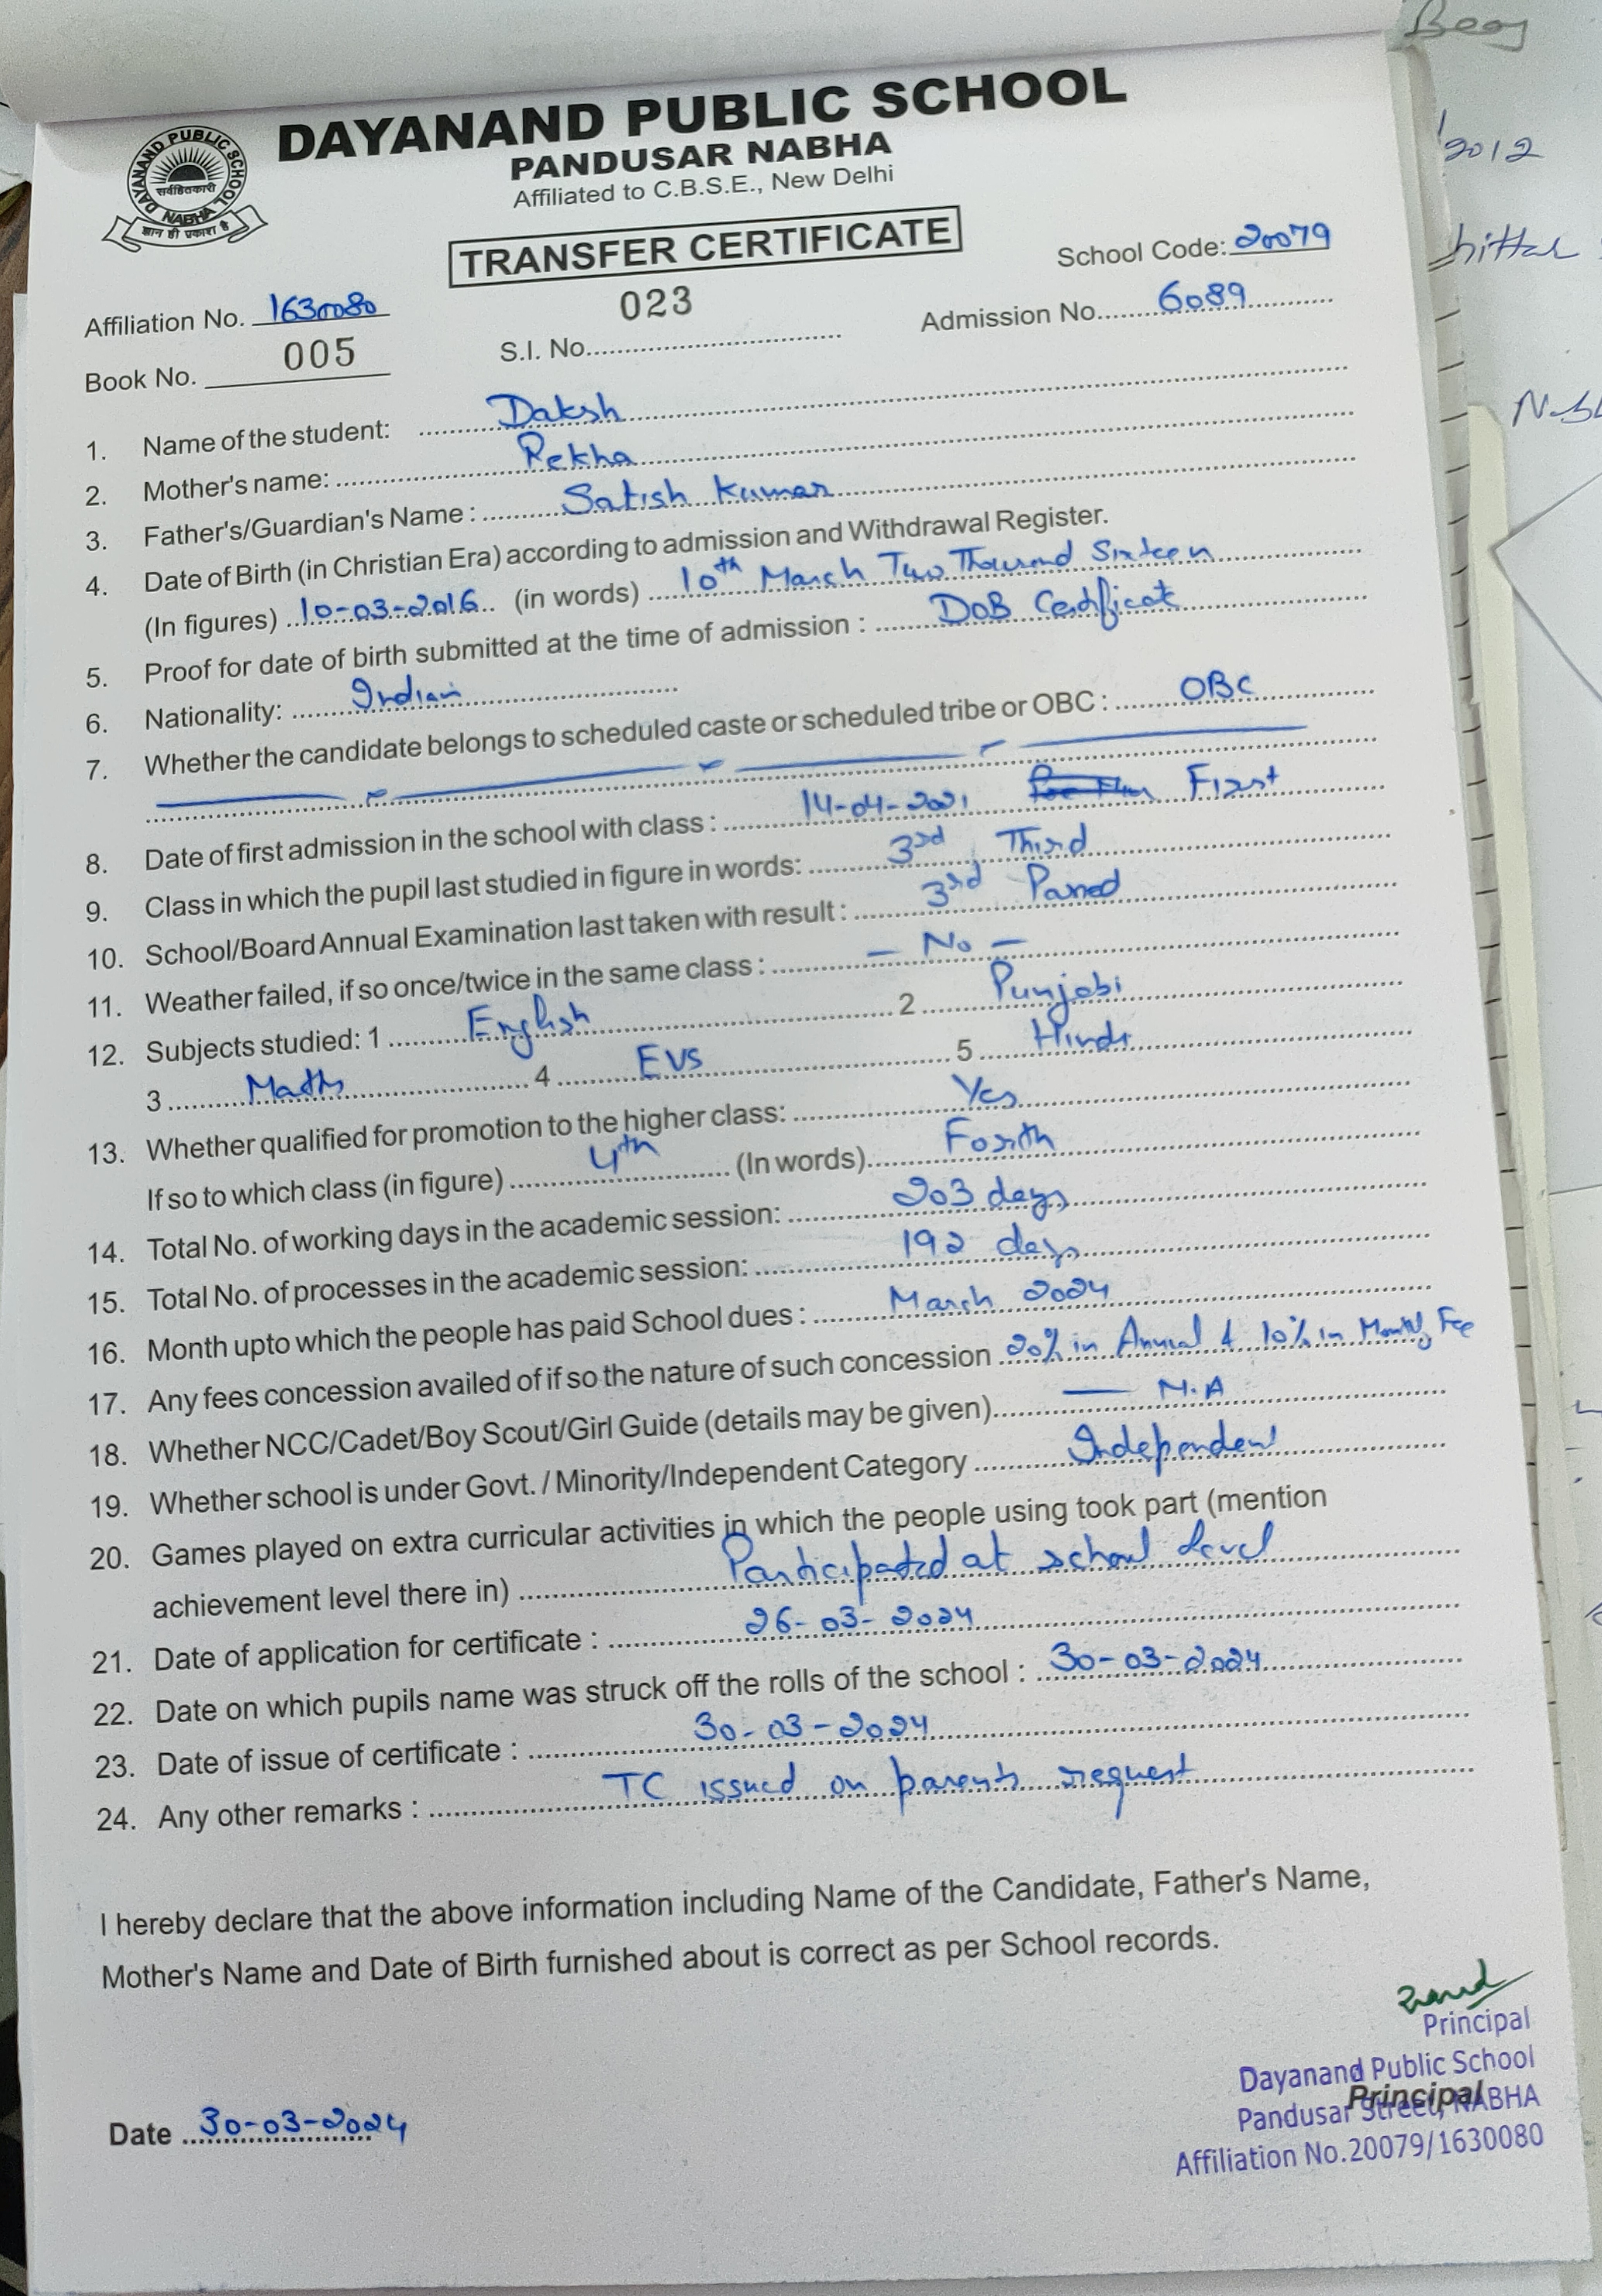 Beas
2012
DAYANAND PUBLIC SCHOOL
PANDUSAR NABHA
Affiliated to C.B.S.E., New Delhi
DAYANAND PUBLIC SCHOOL
सर्वहितकारी
NABHA
ज्ञान ही प्रकाश है
TRANSFER CERTIFICATE
School Code: 20079
Affiliation No. 1630080
023
Admission No. 6089
Book No. 005
S.I. No.
1. Name of the student: Daksh
2. Mother's name: Rekha
3. Father's/Guardian's Name : Satish Kumar
4. Date of Birth (in Christian Era) according to admission and Withdrawal Register.
(In figures) 10-03-2016 (in words) 10th March Two Thousand Sixteen
5. Proof for date of birth submitted at the time of admission : DoB Certificate
6. Nationality: Indian
7. Whether the candidate belongs to scheduled caste or scheduled tribe or OBC : OBC
8. Date of first admission in the school with class : 14-04-2021 First
9. Class in which the pupil last studied in figure in words: 3rd, Third
10. School/Board Annual Examination last taken with result : 3rd Passed
11. Weather failed, if so once/twice in the same class : — No —
12. Subjects studied: 1 English 2 Punjabi
3 Maths 4 EVS 5 Hindi
13. Whether qualified for promotion to the higher class: Yes
If so to which class (in figure) 4th (In words) Forth
14. Total No. of working days in the academic session: 203 days
15. Total No. of processes in the academic session: 192 days
16. Month upto which the people has paid School dues : March 2024
17. Any fees concession availed of if so the nature of such concession 20% in Annual & 10% in Monthly Fee
18. Whether NCC/Cadet/Boy Scout/Girl Guide (details may be given) — N.A
19. Whether school is under Govt. / Minority/Independent Category Independent
20. Games played on extra curricular activities in which the people using took part (mention
achievement level there in) Participated at school level
21. Date of application for certificate : 26-03-2024
22. Date on which pupils name was struck off the rolls of the school : 30-03-2024
23. Date of issue of certificate : 30-03-2024
24. Any other remarks : TC issued on parents request
I hereby declare that the above information including Name of the Candidate, Father's Name,
Mother's Name and Date of Birth furnished about is correct as per School records.
Principal
Dayanand Public School
Principal
Pandusar Street, NABHA
Affiliation No.20079/1630080
Date 30-03-2024